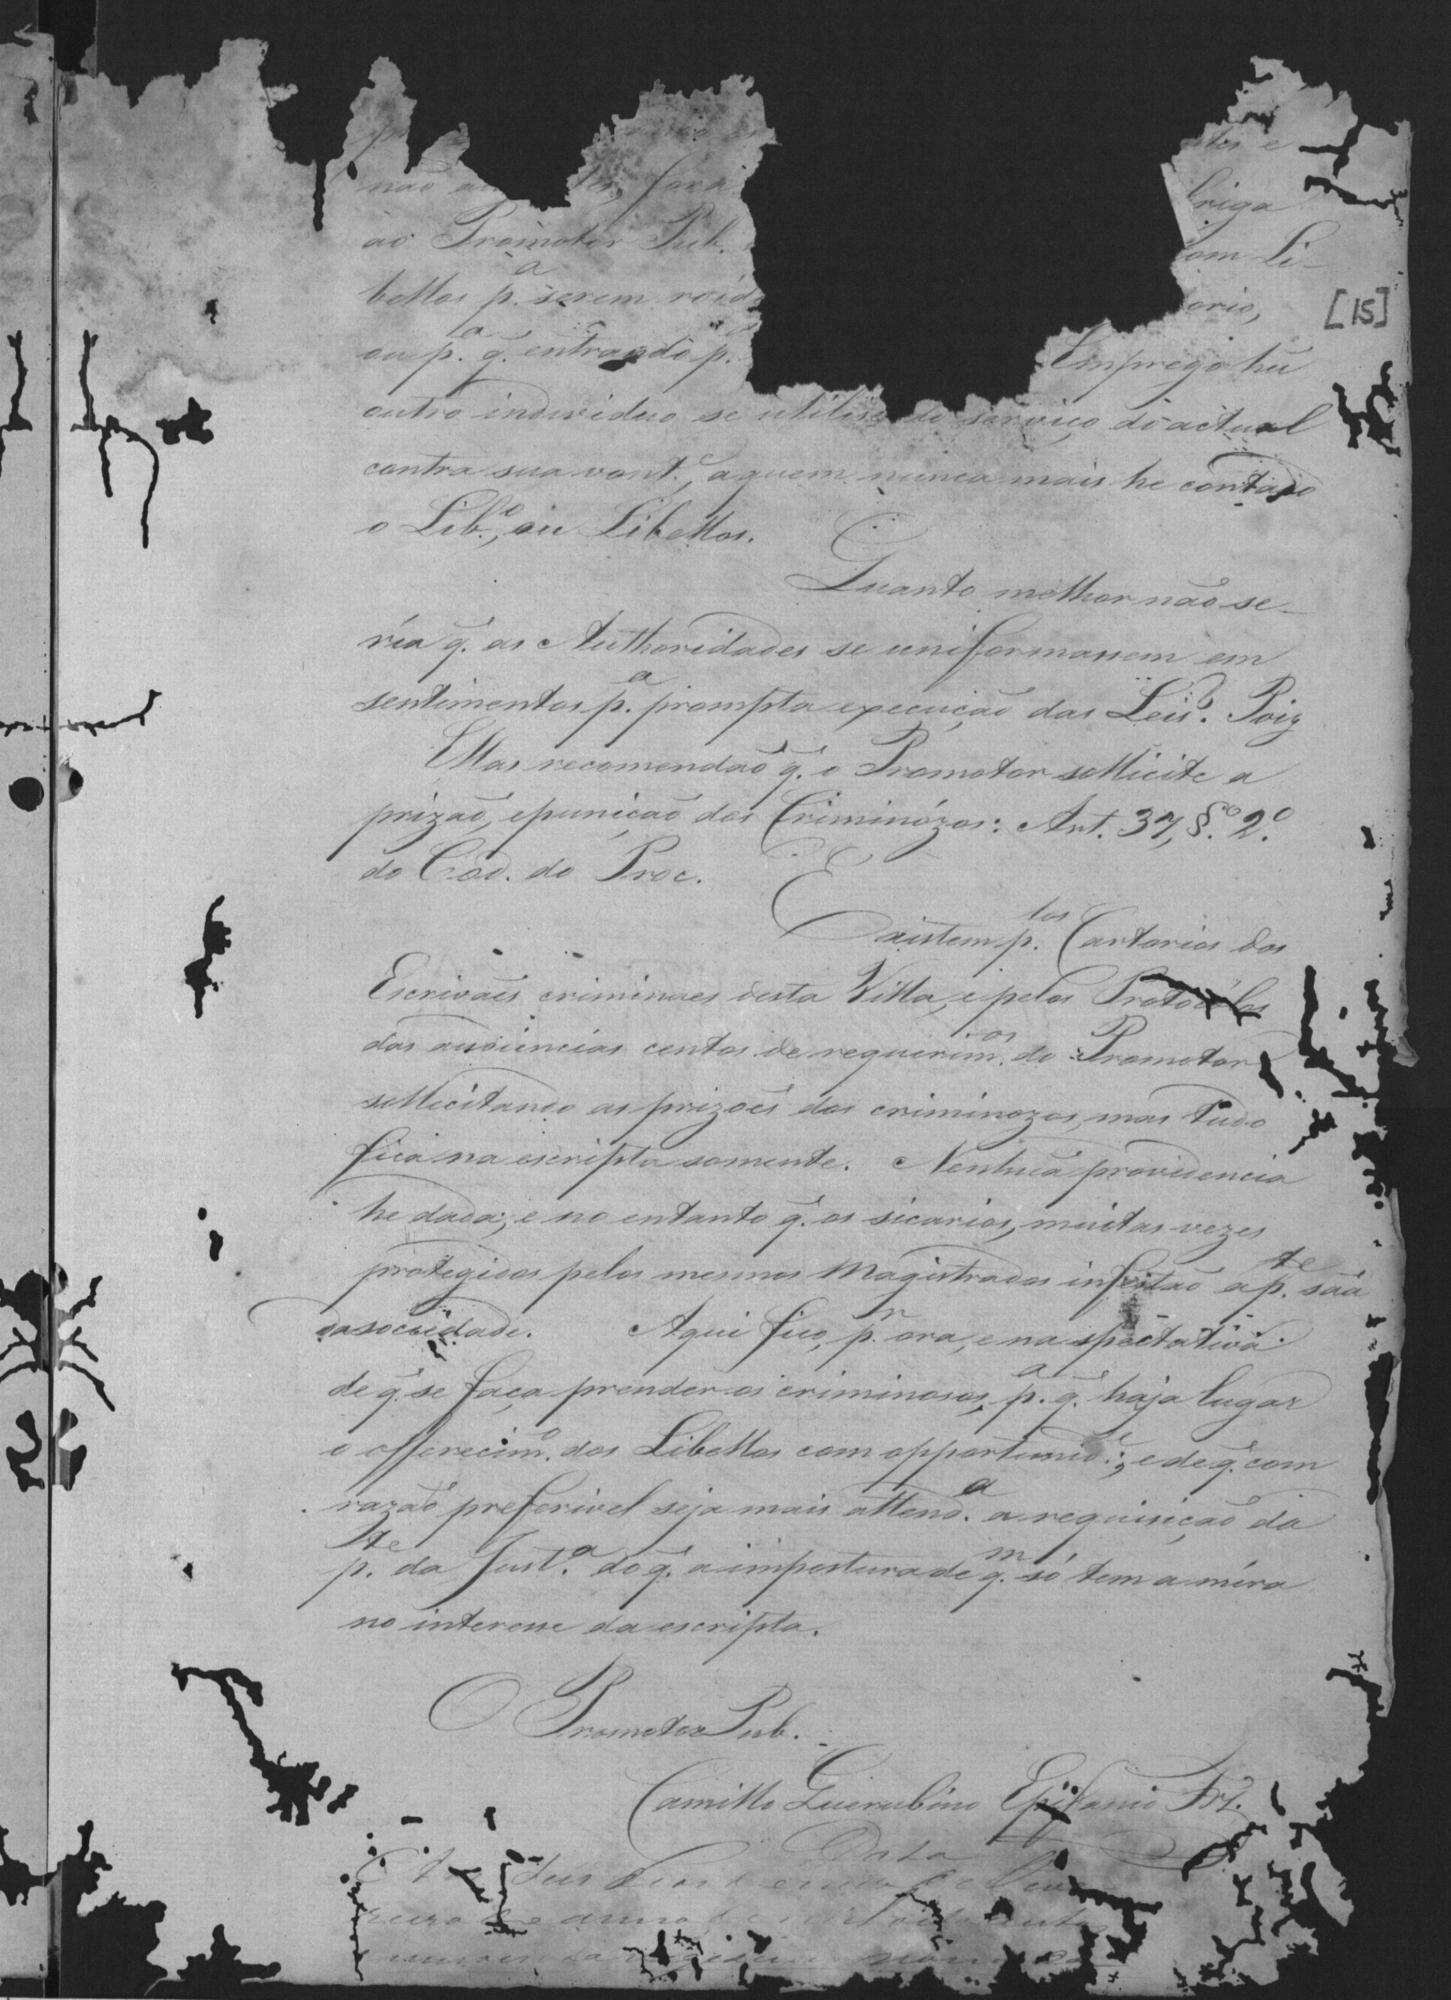 não
ao Promotor Pub. om Li-
bellos p.ª serem roíd orio, [15]
ou p.ª q̃. entrando p. Emprego hũ
outro individuo se utilise do serviço do actual
contra sua vont.e, a quem nunca mais he contado
o Lib.º, ou Libellos.
Quanto melhor não se-
ría q̃. as Authoridades se uniformassem em
sentimentos p.ª prompta execução das Leis? Poiz
Ellas recomendão q̃. o Promotor sollicite a
prizão, e punição dos Criminózos: Art. 37, §.º 2.º
do Cod. do Proc.
Existem p.los Cartorios dos
Escrivães criminaes desta Villa, e pelos Protocolos
das audiencias centos de requerim.os do Promotor
sollicitando as prizões dos criminozos, mas tudo
fica na escripta somente. Nenhuã providencia
he dada; e no entanto q̃. os sicarios, muitas vezes
protegidos pelos mesmos Magistrados infestão a p.te sãa
da sociedade. Aqui fico, p.r ora, e na spectativa
de q̃. se faça prender os criminosos, p.ª q̃. haja lugar
o offerecim.º dos Libellos com opportunid.e; e de q̃. com
razão preferivel seja mais attend.ª a requisição da
p.te da Just.ª do q̃. a impostura de q.m só tem a míra
no interesse da escripta.
O Promotor Pub.
Camillo Querubino Epifanio Frz.
Data